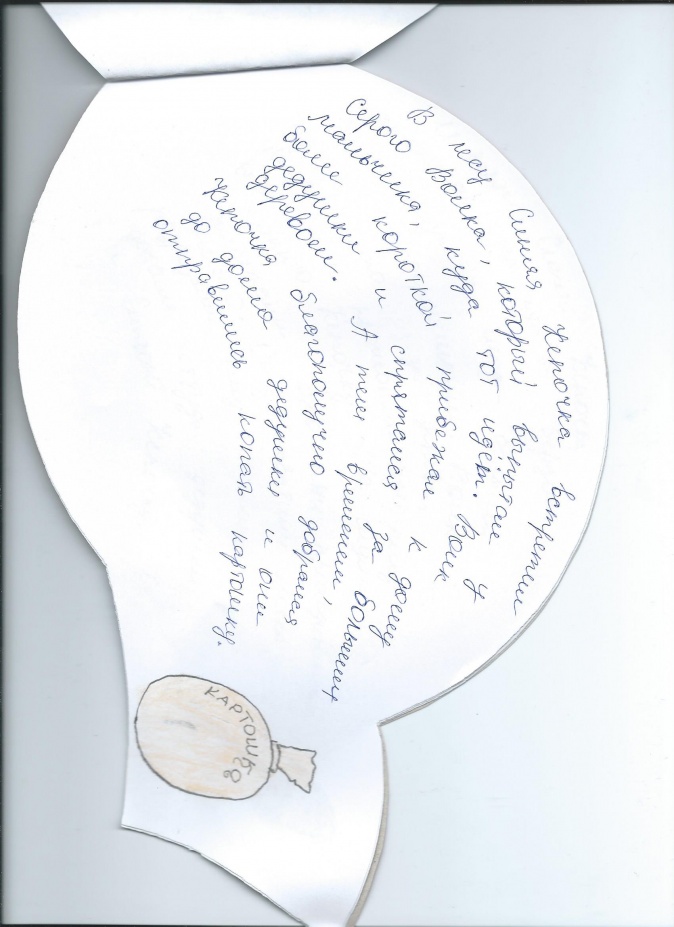 В лесу Синяя Кепочка встретил
Серого Волка, который выпытал у
мальчика, куда тот идет. Волк
более короткой прибежал к дому
дедушки и спрятался за большим
деревом. А тем временем,
Кепочка благополучно добрался
до дома дедушки и они
отправились копать картошку.
КАРТОШКА